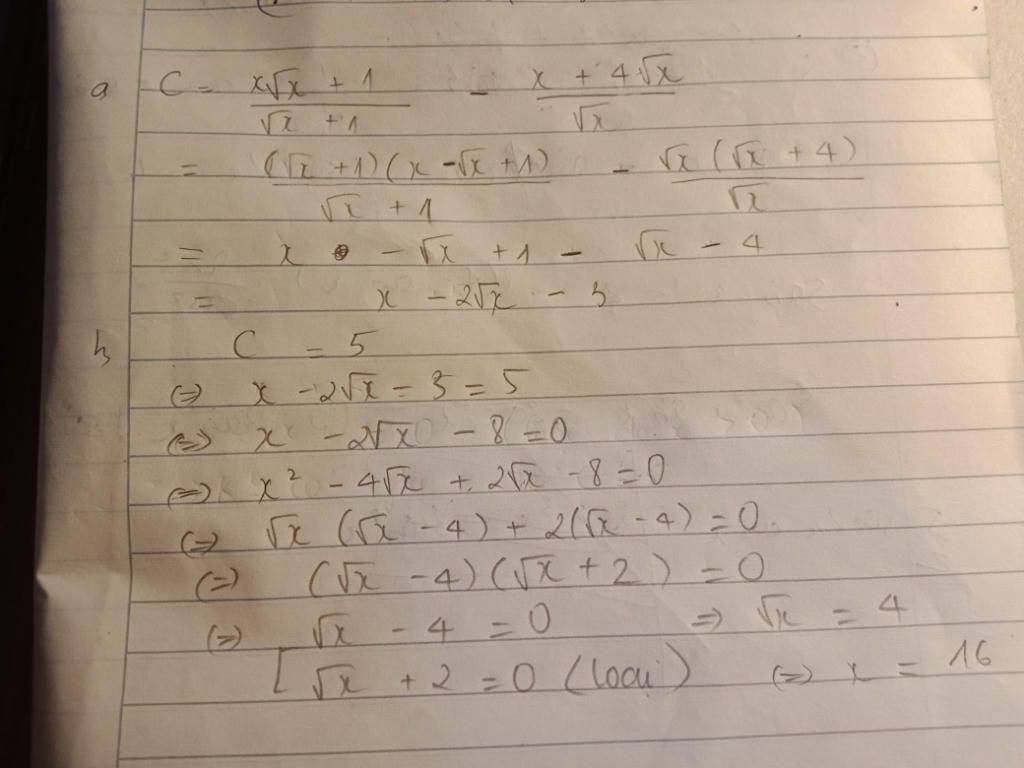 a C = (x√x + 1)/(√x + 1) - (x + 4√x)/√x
= (√x + 1)(x - √x + 1)/(√x + 1) - √x(√x + 4)/√x
= x - √x + 1 - √x - 4
= x - 2√x - 3
b, C = 5
(=) x - 2√x - 3 = 5
(=) x - 2√x - 8 = 0
(=) x² - 4√x + 2√x - 8 = 0
(=) √x (√x - 4) + 2(√x - 4) = 0
(=) (√x - 4)(√x + 2) = 0
(=) √x - 4 = 0 => √x = 4
[ √x + 2 = 0 (loại) (=) x = 16